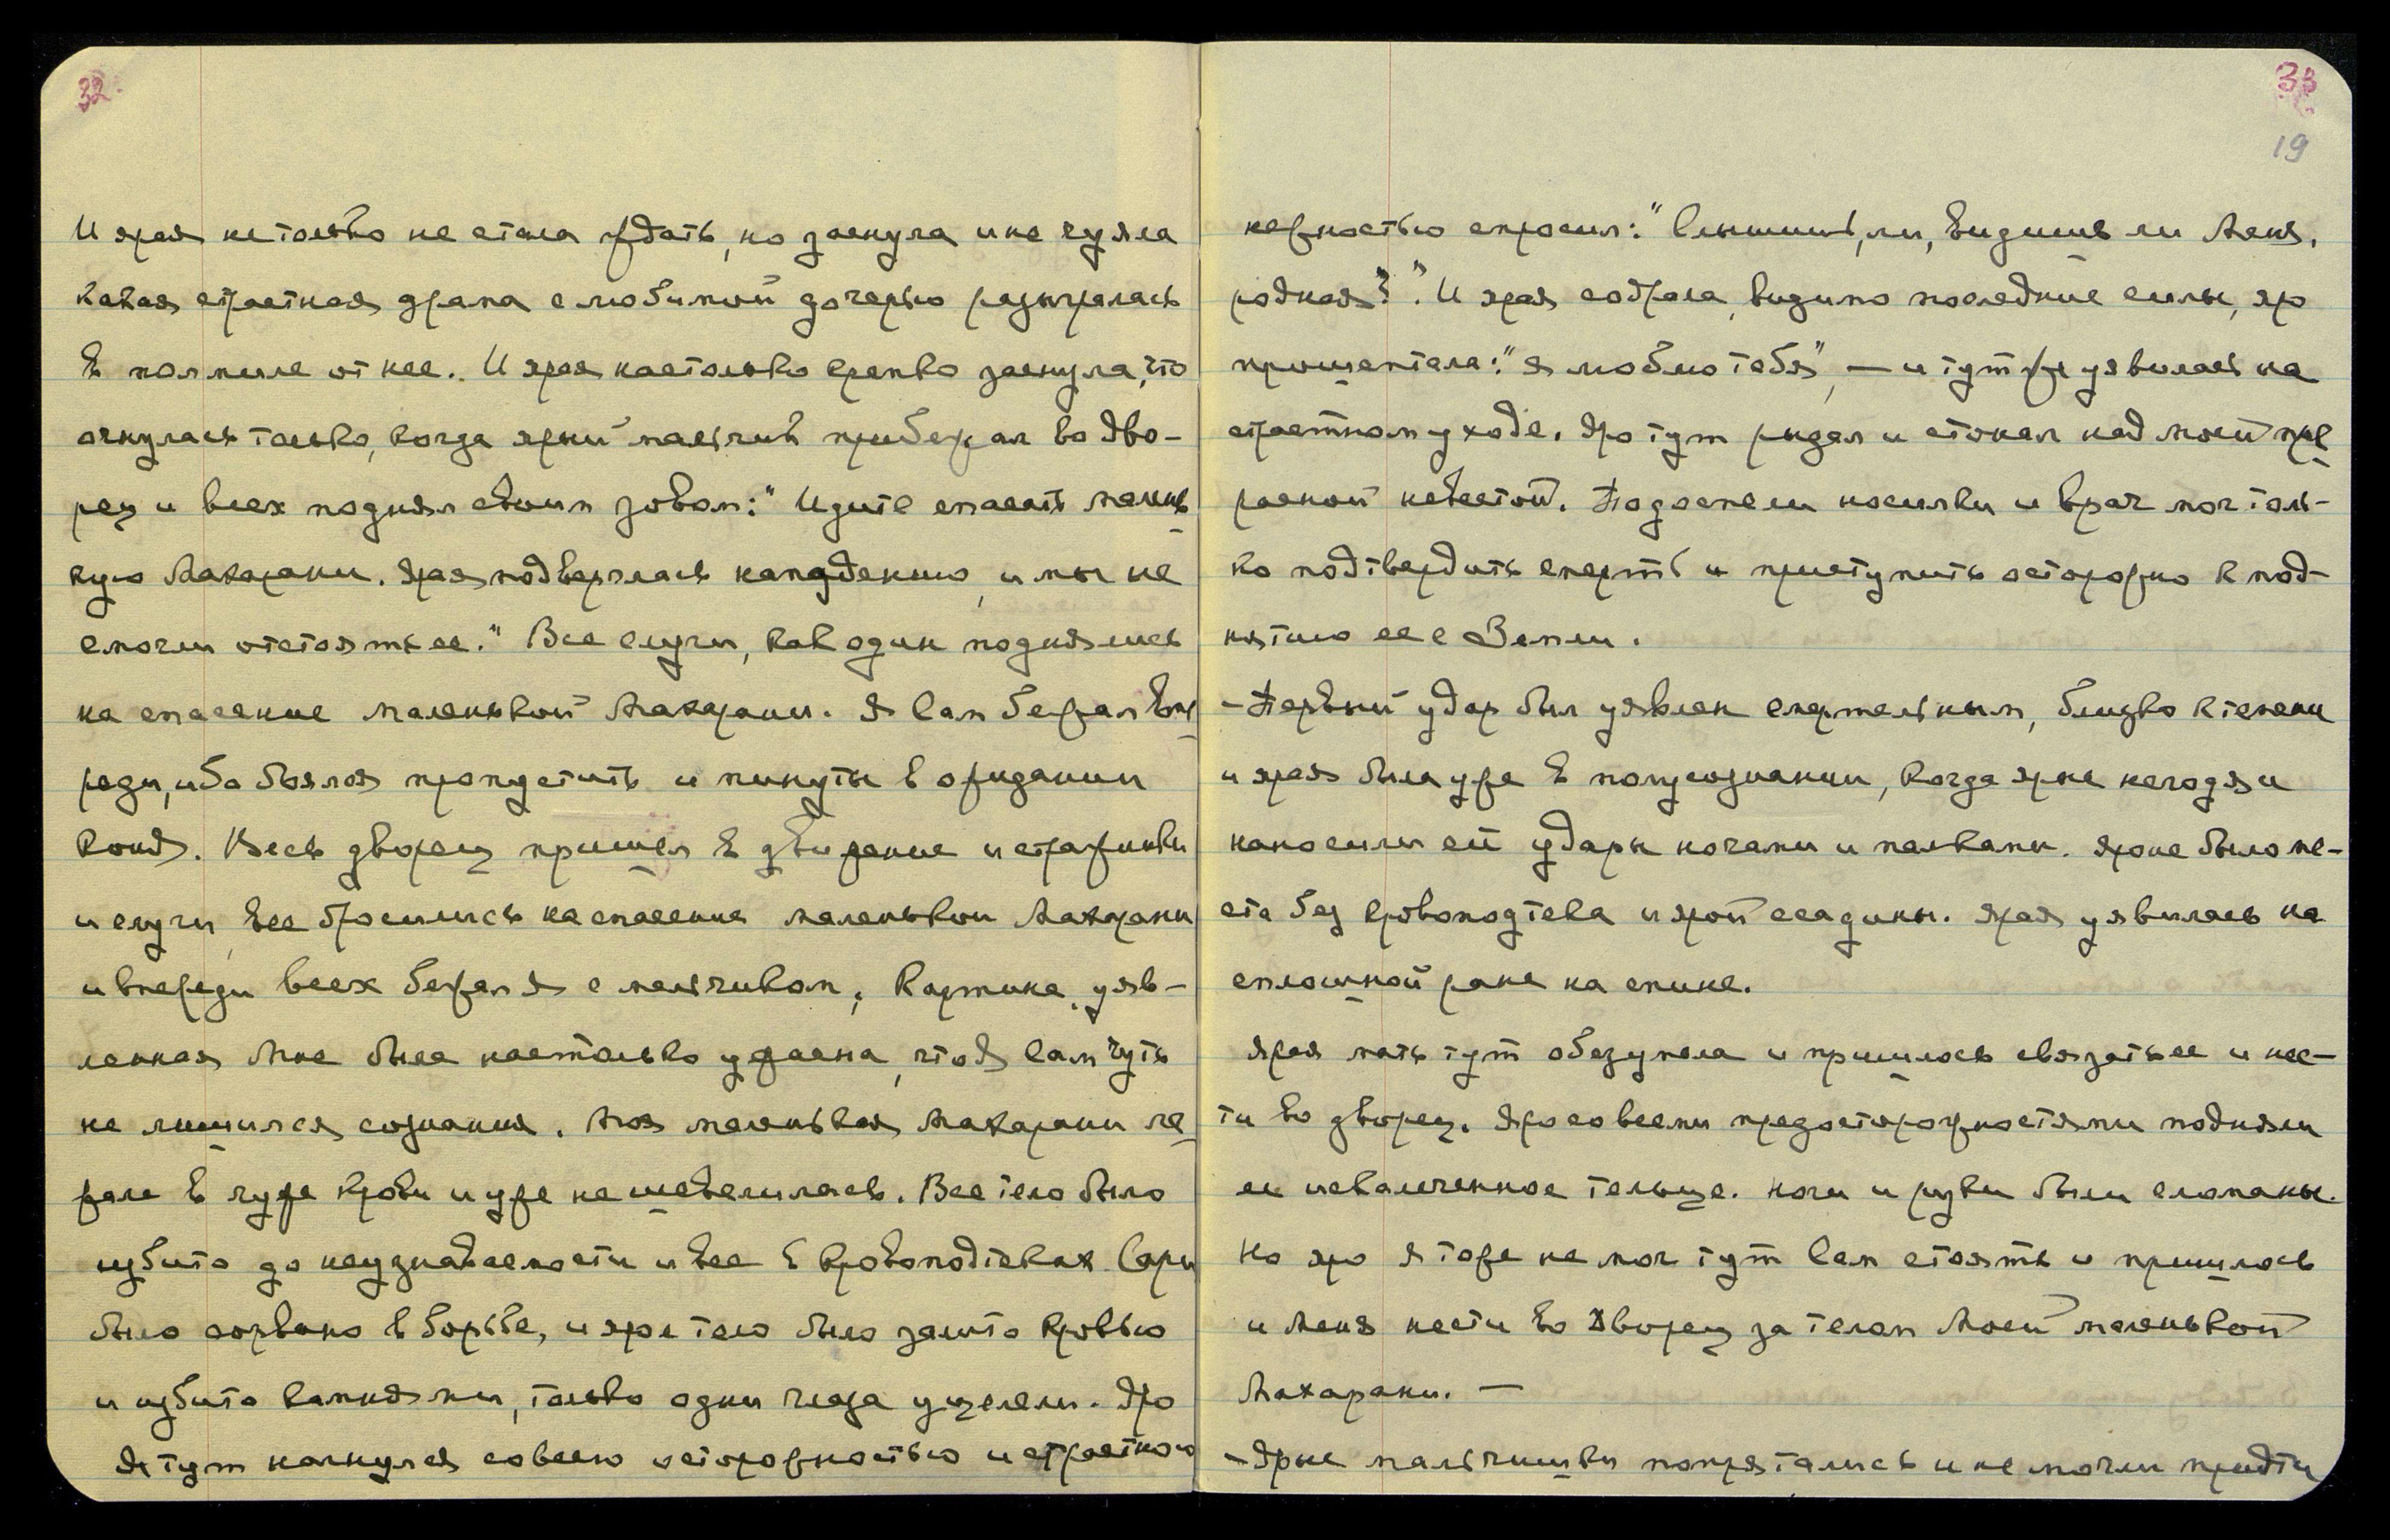 32.
И ярая не только не стала ждать, но заснула и не чуяла
какая страстная драма с любимой дочерью разыгралась
в полмиле от нее. И ярая настолько крепко заснула, что
очнулась только, когда ярый мальчик прибежал во дво-
рец и всех поднял своим зовом: "Идите спасать малень
кую Махарани. Ярая подверглась нападению, и мы не
смогли отстоять ее." Все слуги, как один поднялись
на спасение маленькой Махарани. Я Сам бежал впе
реди, ибо боялся пропустить и минуты в ожидании
коня. Весь дворец пришел в движение и стражники
и слуги, все бросились на спасение маленькой Махарани
и впереди всех бежал Я с мальчиком. Картина, уяв-
ленная Мне была настолько ужасна, что Я Сам чуть
не лишился сознания. Моя маленькая Махарани ле
жала в луже крови и уже не шевелилась. Все тело было
избито до неузнаваемости и все в кровоподтеках. Сари
было сорвано в борьбе, и яро тело было залито кровью
и избито камнями, только одни глаза уцелели. Яро
Я тут нагнулся со всею осторожностью и страстною
33
19
нежностью спросил: "Слышишь, ли, видишь ли Меня,
родная?". И ярая собрала, видимо последние силы, яро
прошептала: "я люблю тебя", — и тут же уявилась на
страстном уходе. Яро тут рыдал и стонал над моей пре
красной невестой. Подоспели носилки и врач мог толь-
ко подтвердить смерть и приступить осторожно к под-
нятию ее с Земли.
- Первый удар был уявлен смертельным, близко к темени
и ярая была уже в полусознании, когда ярые негодяи
наносили ей удары ногами и палками. Яро не было ме-
ста без кровоподтека и ярой ссадины. Ярая уявилась на
сплошной ране на спине.
Ярая мать тут обезумела и пришлось связать ее и нес-
ти во дворец. Яро со всеми предосторожностями подняли
ее искалеченное тельце. Ноги и руки были сломаны.
Но яро Я тоже не мог тут Сам стоять и пришлось
и Меня нести во Дворец за телом Моей маленькой
Махарани. —
- Ярые мальчишки попрятались и не могли придти